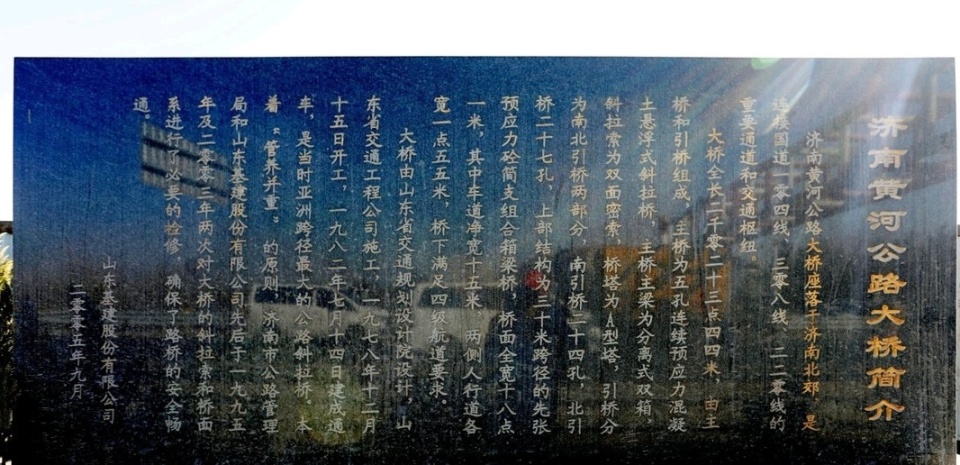 济南黄河公路大桥简介
济南黄河公路大桥座落于济南北郊，是
连接国道一零四线、三零八线、二二零线的
重要通道和交通枢纽。
大桥全长二千零二十三点四四米，由主
桥和引桥组成，主桥为五孔连续预应力混凝
土悬浮式斜拉桥，主桥主梁为分离式双箱，
斜拉索为双面密索，桥塔为A型塔，引桥分
为南北引桥两部分，南引桥二十四孔，北引
桥二十七孔，上部结构为三十米跨径的先张
预应力砼简支组合箱梁桥，桥面全宽十八点
一米，其中车道净宽十五米，两侧人行道各
宽一点五五米，桥下满足四级航道要求。
大桥由山东省交通规划设计院设计，山
东省交通工程公司施工，一九七八年十二月
十五日开工，一九八二年七月十四日建成通
车，是当时亚洲跨径最大的公路斜拉桥。本
着“管养并重”的原则，济南市公路管理
局和山东基建股份有限公司先后于一九九五
年及二零零三年两次对大桥的斜拉索和桥面
系进行了必要的检修，确保了路桥的安全畅
通。
山东基建股份有限公司
二零零五年九月